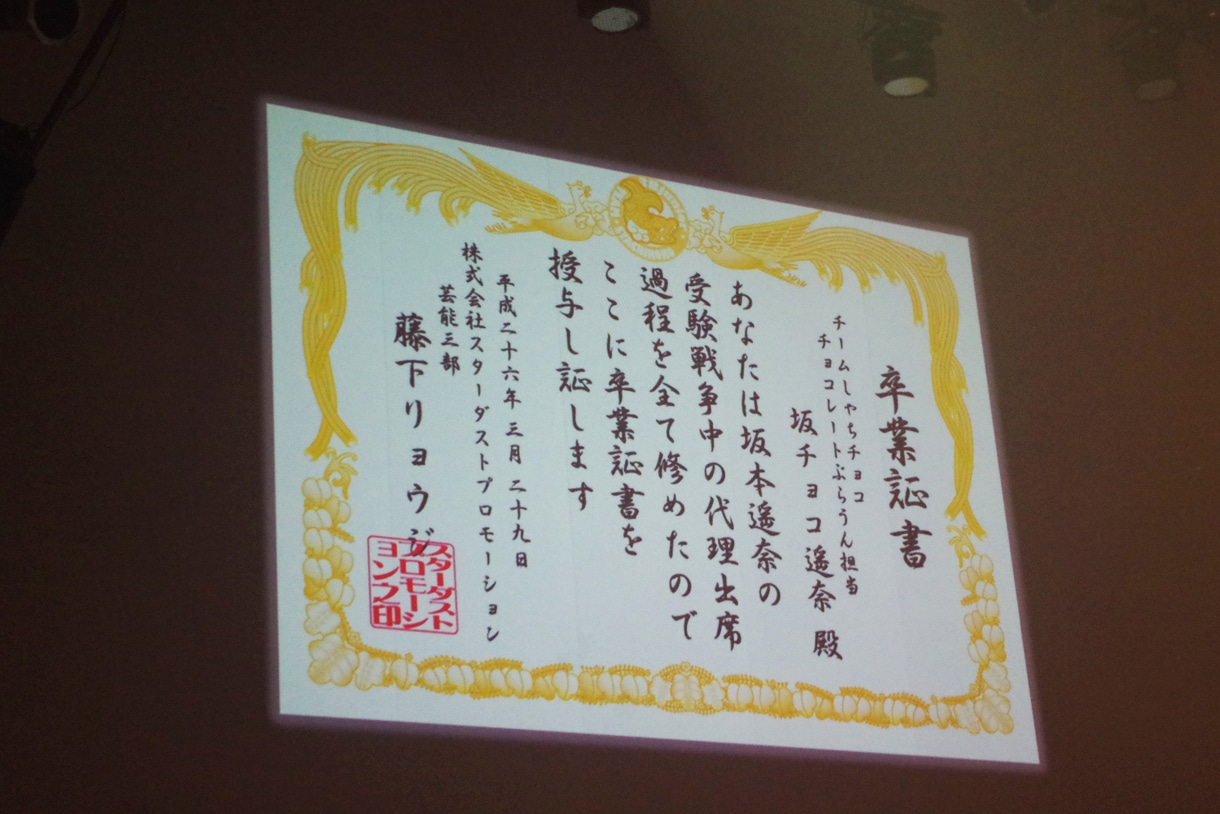 卒業証書
チームしゃちチョコ
チョコレートぶらうん担当
坂チョコ遥奈 殿
あなたは坂本遥奈の
受験戦争中の代理出席
過程を全て修めたので
ここに卒業証書を
授与し証します
平成二十六年三月二十九日
株式会社スターダストプロモーション
芸能三部
藤下リョウジ
スターダスト
プロモーシ
ョン之印